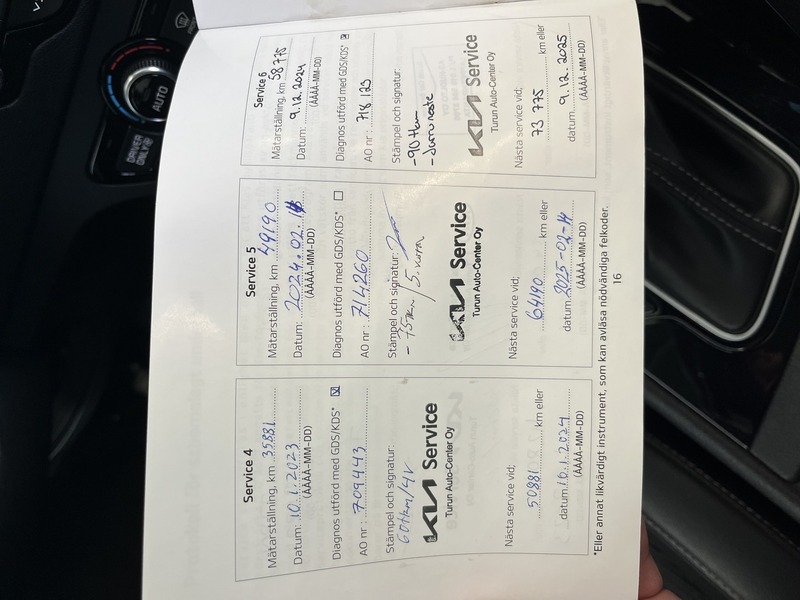 Service 4
Mätarställning, km 35881
Datum: 10.1.2023
(ÅÅÅÅ-MM-DD)
Diagnos utförd med GDS/KDS* ☑
AO nr : 709443
Stämpel och signatur:
60tkm/4v
KIA Service
Turun Auto-Center Oy
Nästa service vid;
50881 km eller
datum 10.1.2024
(ÅÅÅÅ-MM-DD)
Service 5
Mätarställning, km 49190
Datum: 2024.02.14
(ÅÅÅÅ-MM-DD)
Diagnos utförd med GDS/KDS* ☐
AO nr : 714260
Stämpel och signatur:
- 75tkm/5.vuosi
KIA Service
Turun Auto-Center Oy
Nästa service vid;
64190 km eller
datum 2025-02-14
(ÅÅÅÅ-MM-DD)
Service 6
Mätarställning, km 58 775
Datum: 9.12.2024
(ÅÅÅÅ-MM-DD)
Diagnos utförd med GDS/KDS* ☑
AO nr : 718 123
Stämpel och signatur:
-90tkm
-Jarruneste
KIA Service
Turun Auto-Center Oy
Nästa service vid;
73 775 km eller
datum 9.12.2025
(ÅÅÅÅ-MM-DD)
*Eller annat likvärdigt instrument, som kan avläsa nödvändiga felkoder.
16
AUTO
DRIVER
ONLY